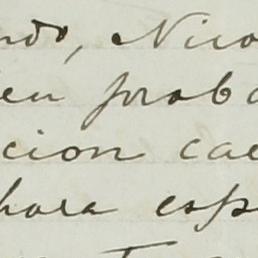 ndo, Nico
ien proba
cion cae
hora esp